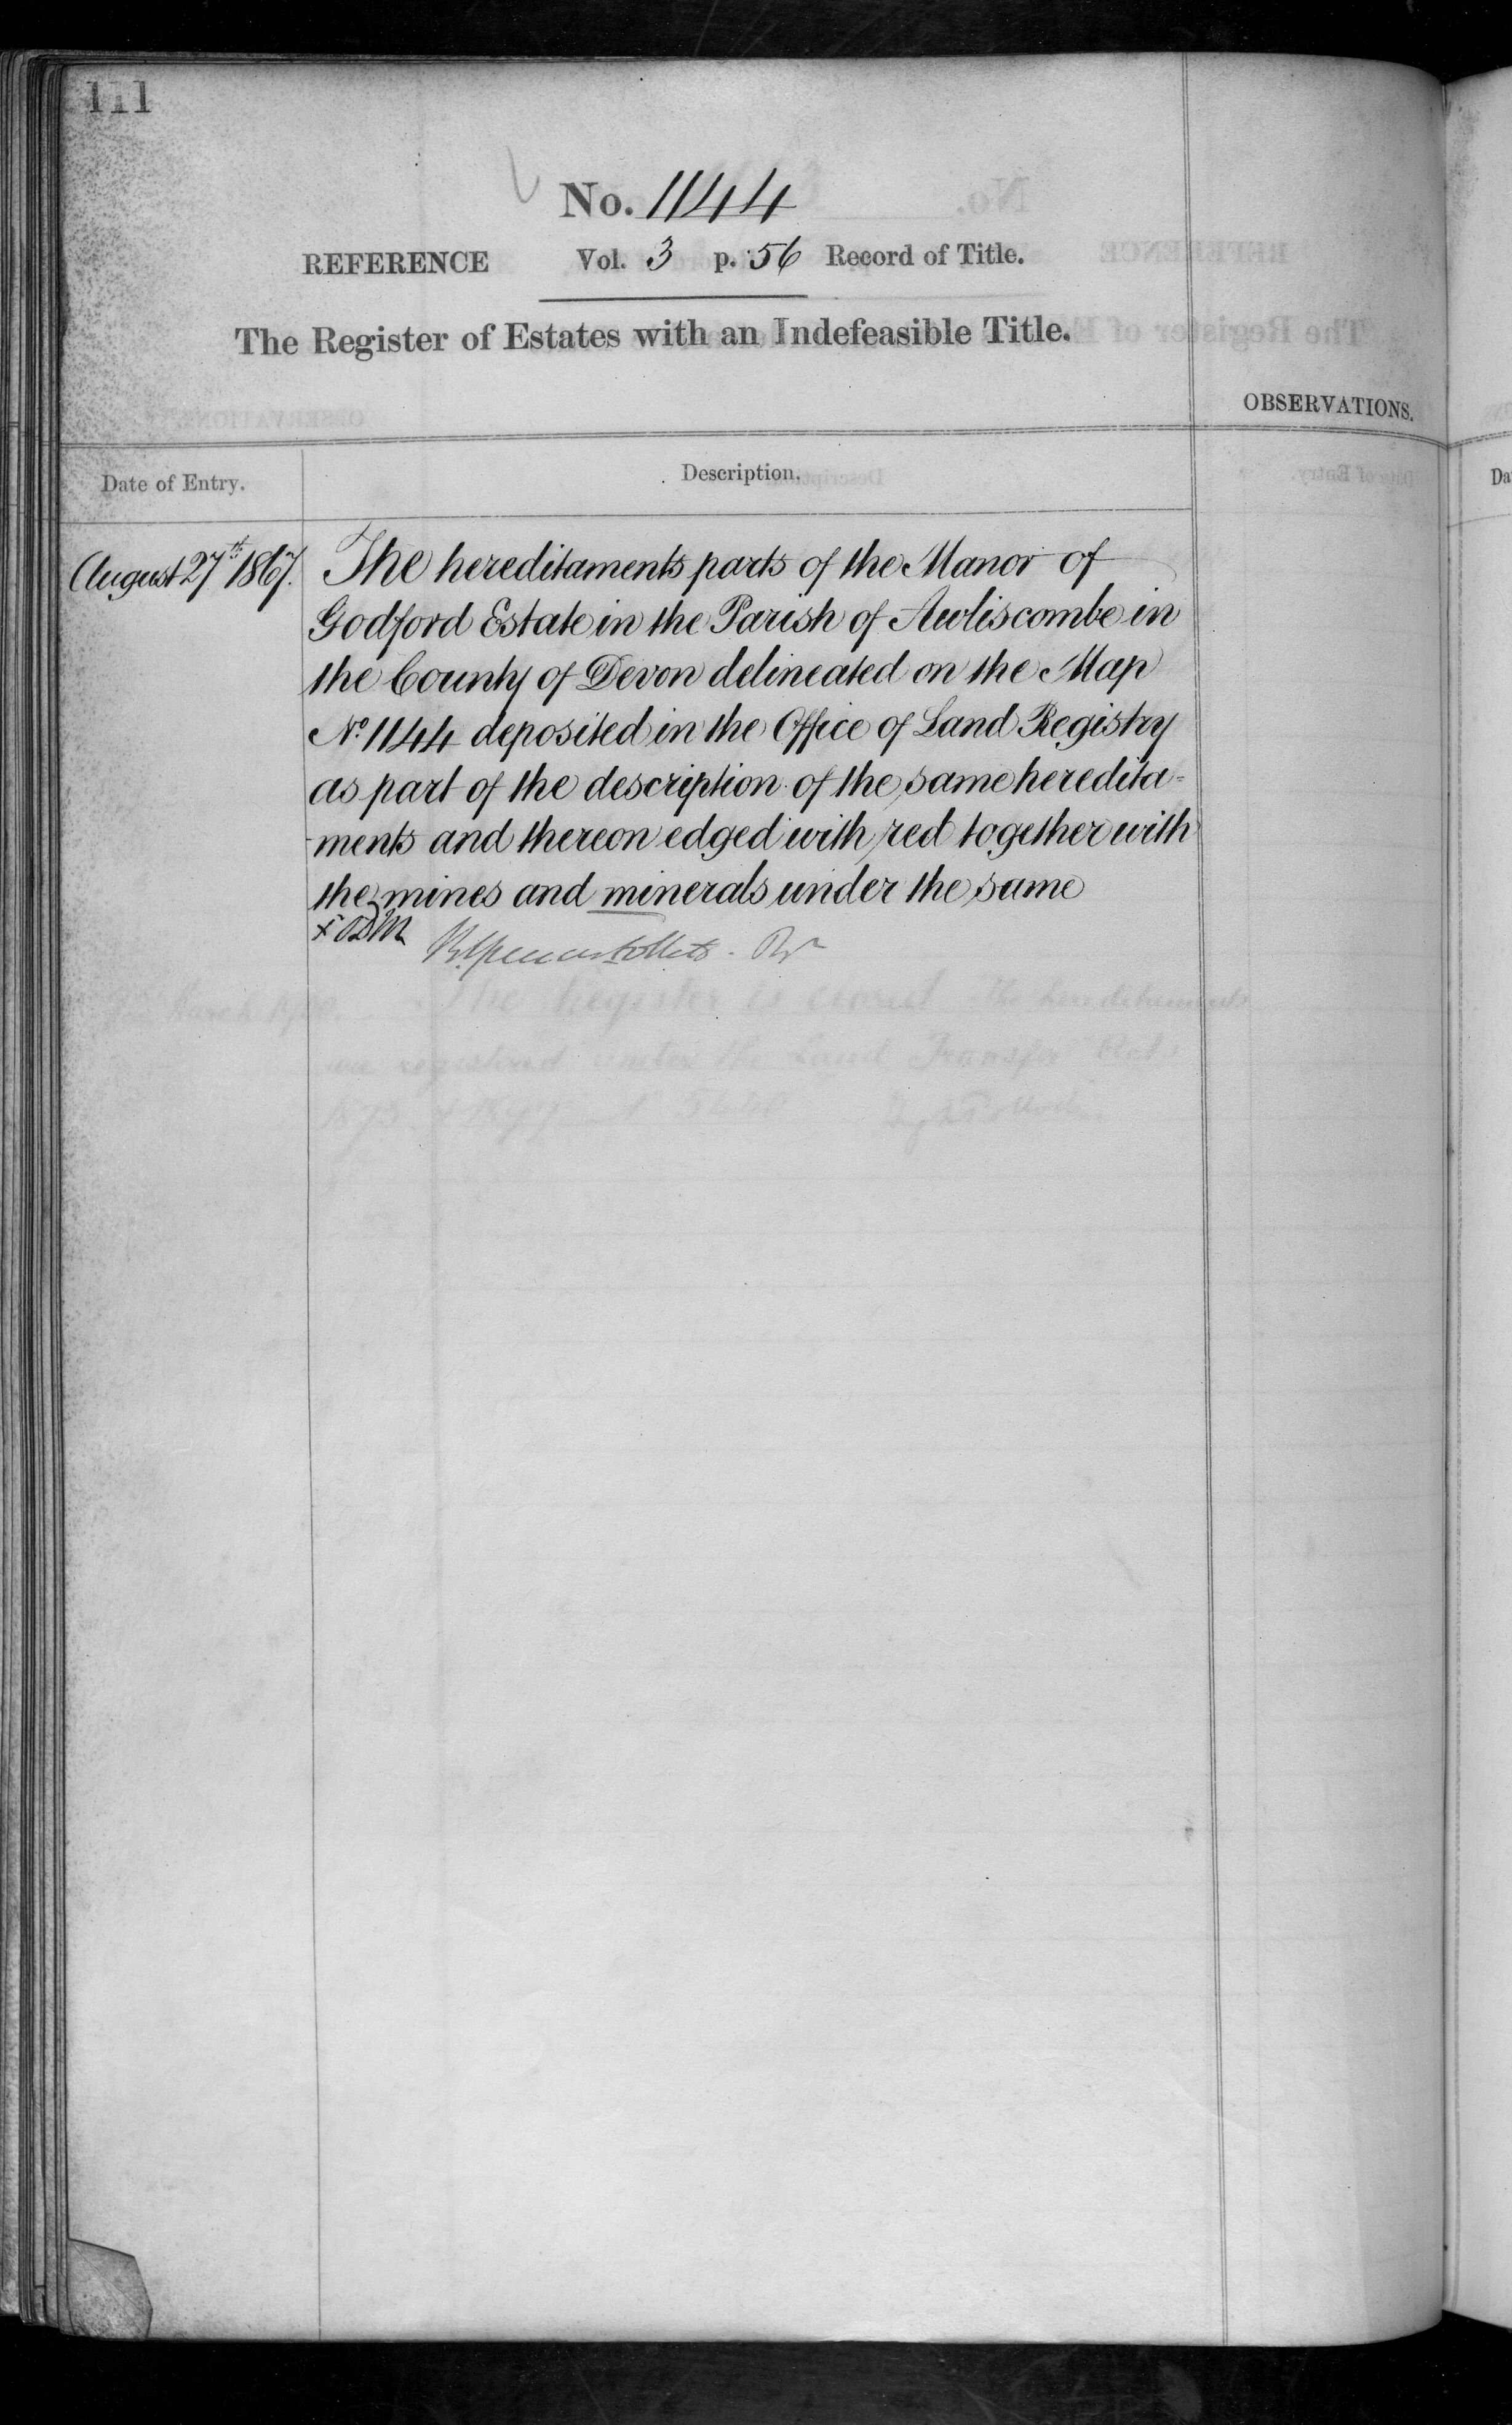 111
No. 1144
REFERENCE Vol. 3 p. 56 Record of Title.
The Register of Estates with an Indefeasible Title.
OBSERVATIONS.
Date of Entry.
Description.
August 27th 1867.
The hereditaments parts of the Manor of
Godford Estate in the Parish of Awliscombe in
the County of Devon delineated on the Map
No. 1144 deposited in the Office of Land Registry
as part of the description of the same heredita-
-ments and thereon edged with red together with
the mines and minerals under the same
The Register is closed the hereditaments
are registered under the Land Transfer Acts
Da